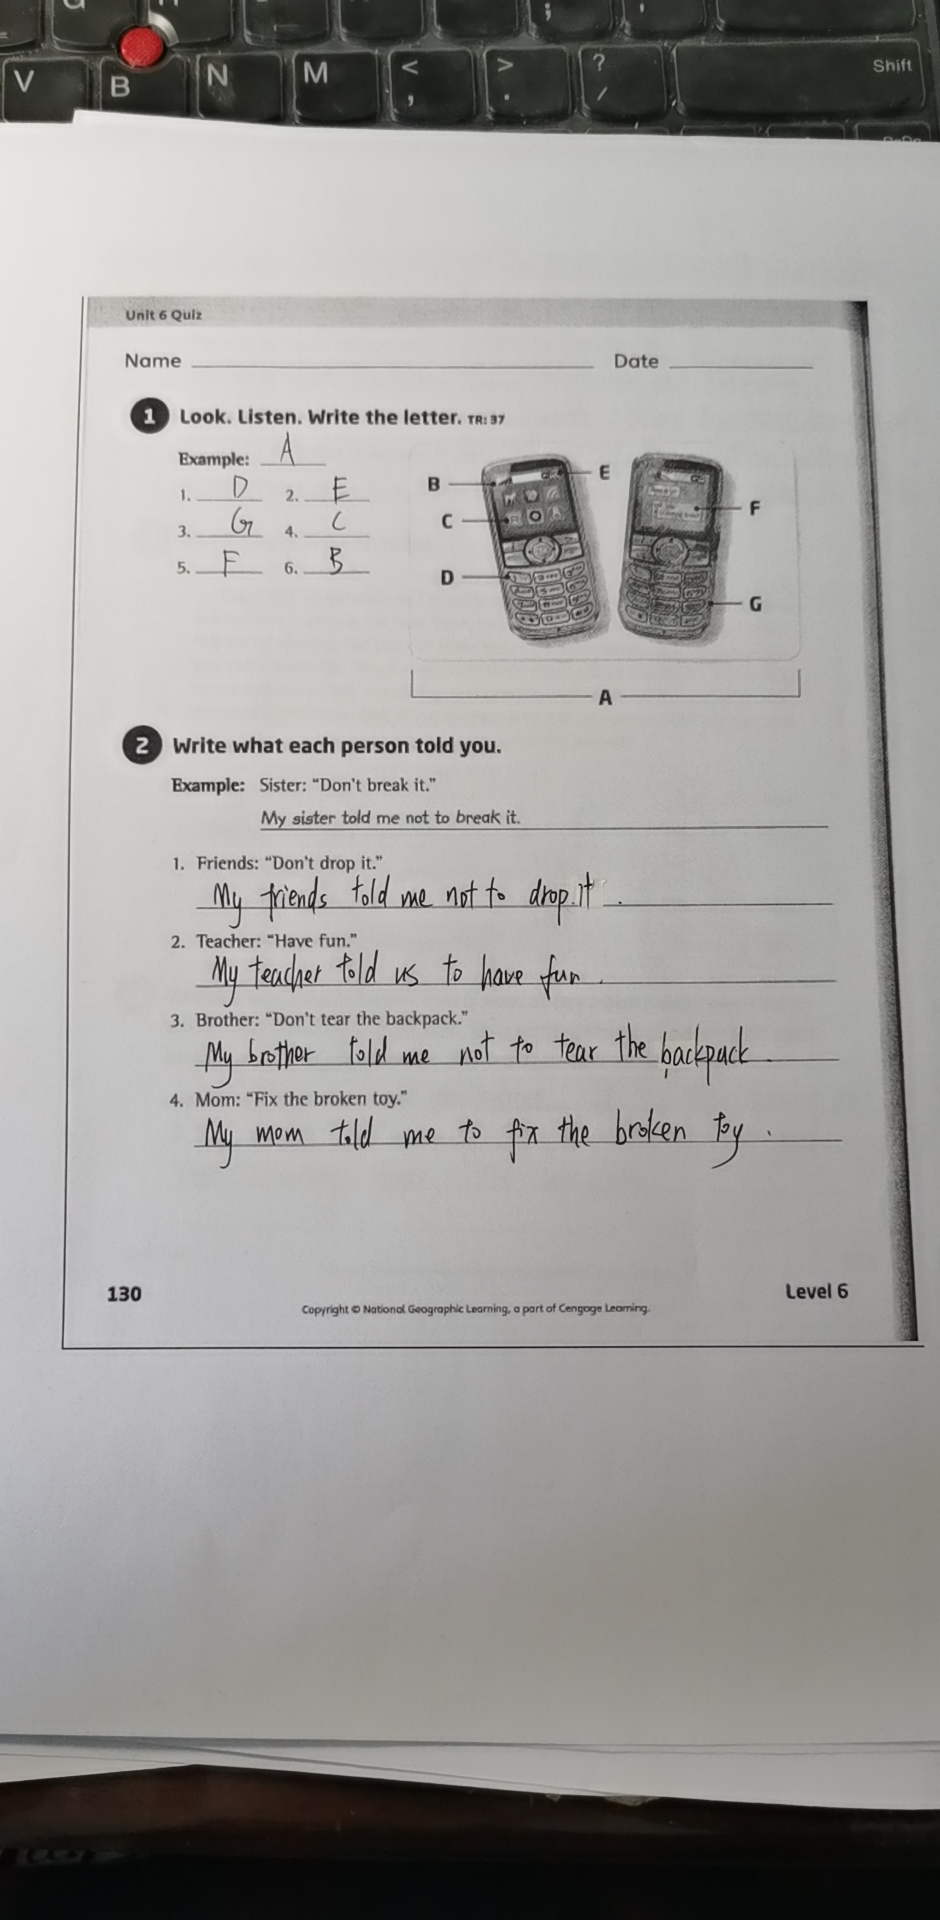 V B N M < , > . ? / Shift
Unit 6 Quiz
Name Date
1 Look. Listen. Write the letter. TR: 37
Example: A
1. D 2. E
3. G 4. C
5. F 6. B
B E
C F
D G
A
2 Write what each person told you.
Example: Sister: "Don't break it."
My sister told me not to break it.
1. Friends: "Don't drop it."
My friends told me not to drop it.
2. Teacher: "Have fun."
My teacher told us to have fun.
3. Brother: "Don't tear the backpack."
My brother told me not to tear the backpack.
4. Mom: "Fix the broken toy."
My mom told me to fix the broken toy.
130 Level 6
Copyright © National Geographic Learning, a part of Cengage Learning.